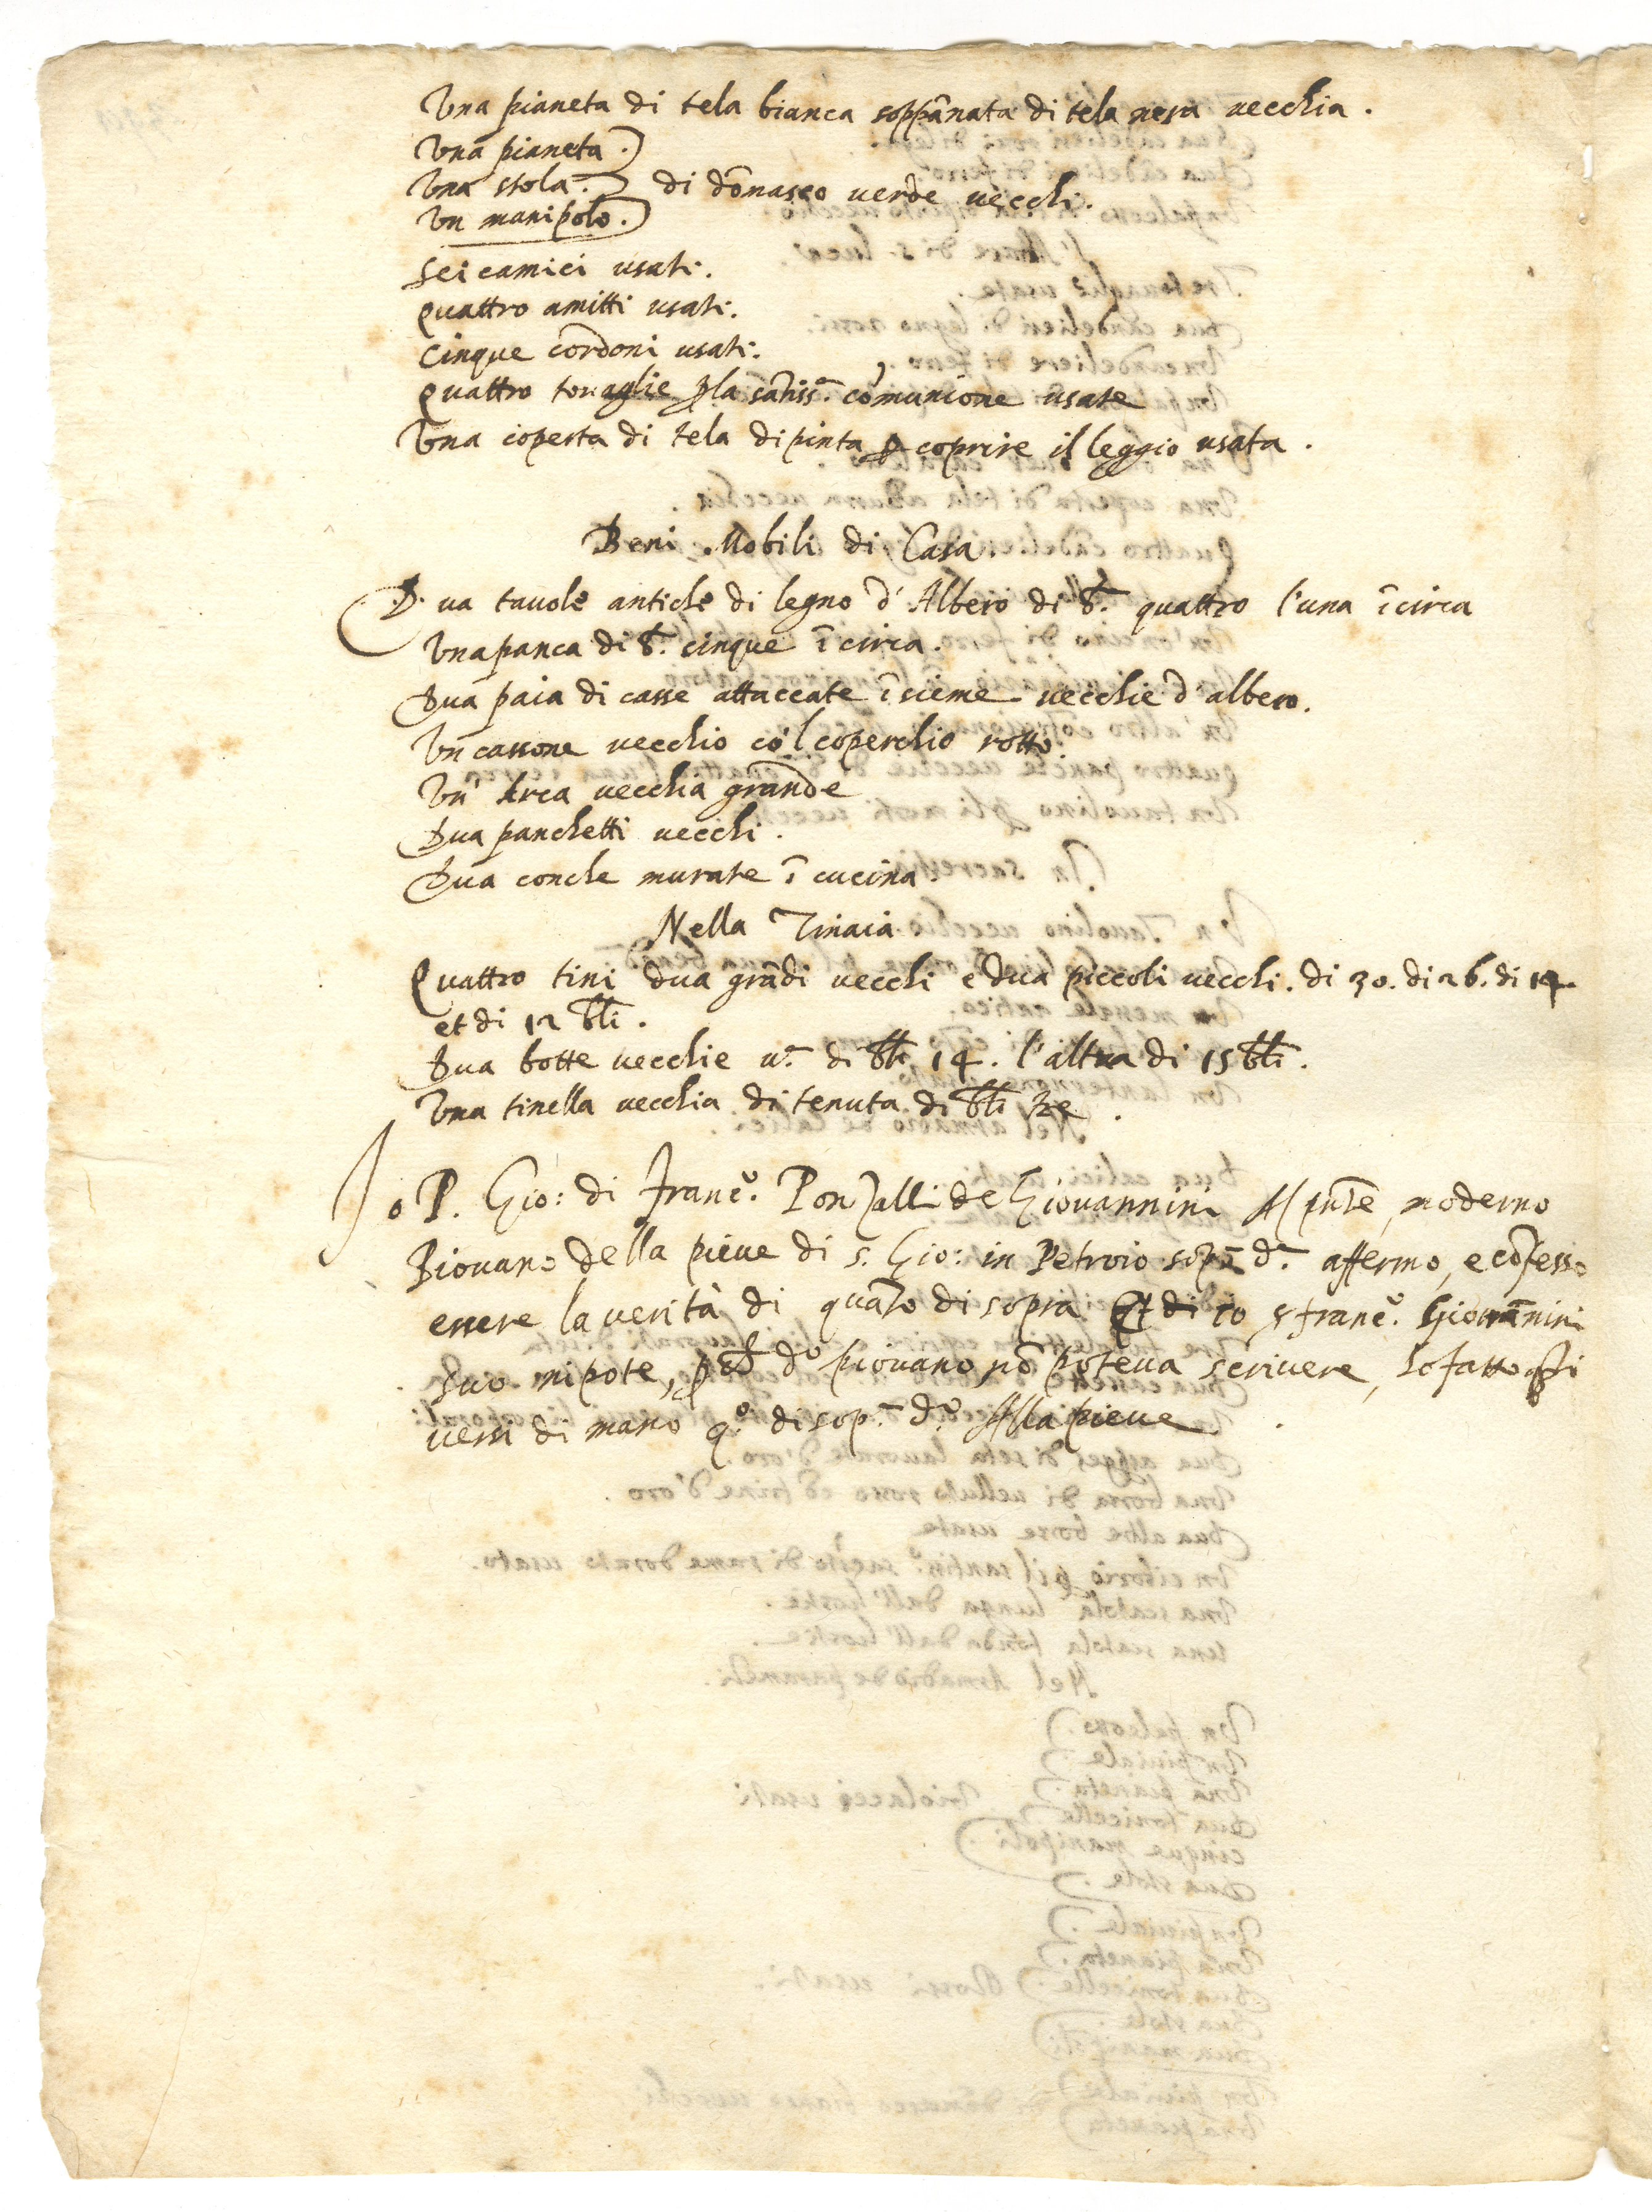 Una pianeta di tela bianca soppãnata di tela nera uecchia.
Una pianeta.
Una stola. di dõmasco uerde uecchi.
Un manipolo.
Sei camici usati.
Quattro amitti usati.
Cinque cordoni usati.
Quattro touaglie p la sãtiss.ª comunione usate
Una coperta di tela dipinta p coprire il leggio usata.
Beni Mobili di Casa
Dua tauole antiche di legno d'Albero di bª. quattro l'una ĩcirca
Una panca di bª. cinque ĩcirca.
Dua paia di casse attaccate ĩsieme uecchie d'albero.
Un cassone uecchio co'l coperchio rotto.
Un'Arca uecchia grande
Dua panchetti uecchi.
Dua conche murate ĩ cucina
Nella Tinaia
Quattro tini dua grãdi uecchi e dua piccoli uecchi. di 30. di 26. di 14.
et di 12 bli.
Dua botte uecchie uª. di bli 14. l'altra di 15 bli.
Una tinella uecchia di tenuta di bli tre.
Io P. Gio: di Franc.º Ponzalli de Giouannini Al pnte, moderno
Piouano della pieue di s. Gio: in Petroio sopª dª. affermo, e cõfesso
essere la uerità di quãto di sopra Et io franc.º Giouãnini
suo nipote, p ch dº piouano nõ poteua scriuere, ho fatto qsti
uersi di mano qº. di sopª. dº. Alla pieue